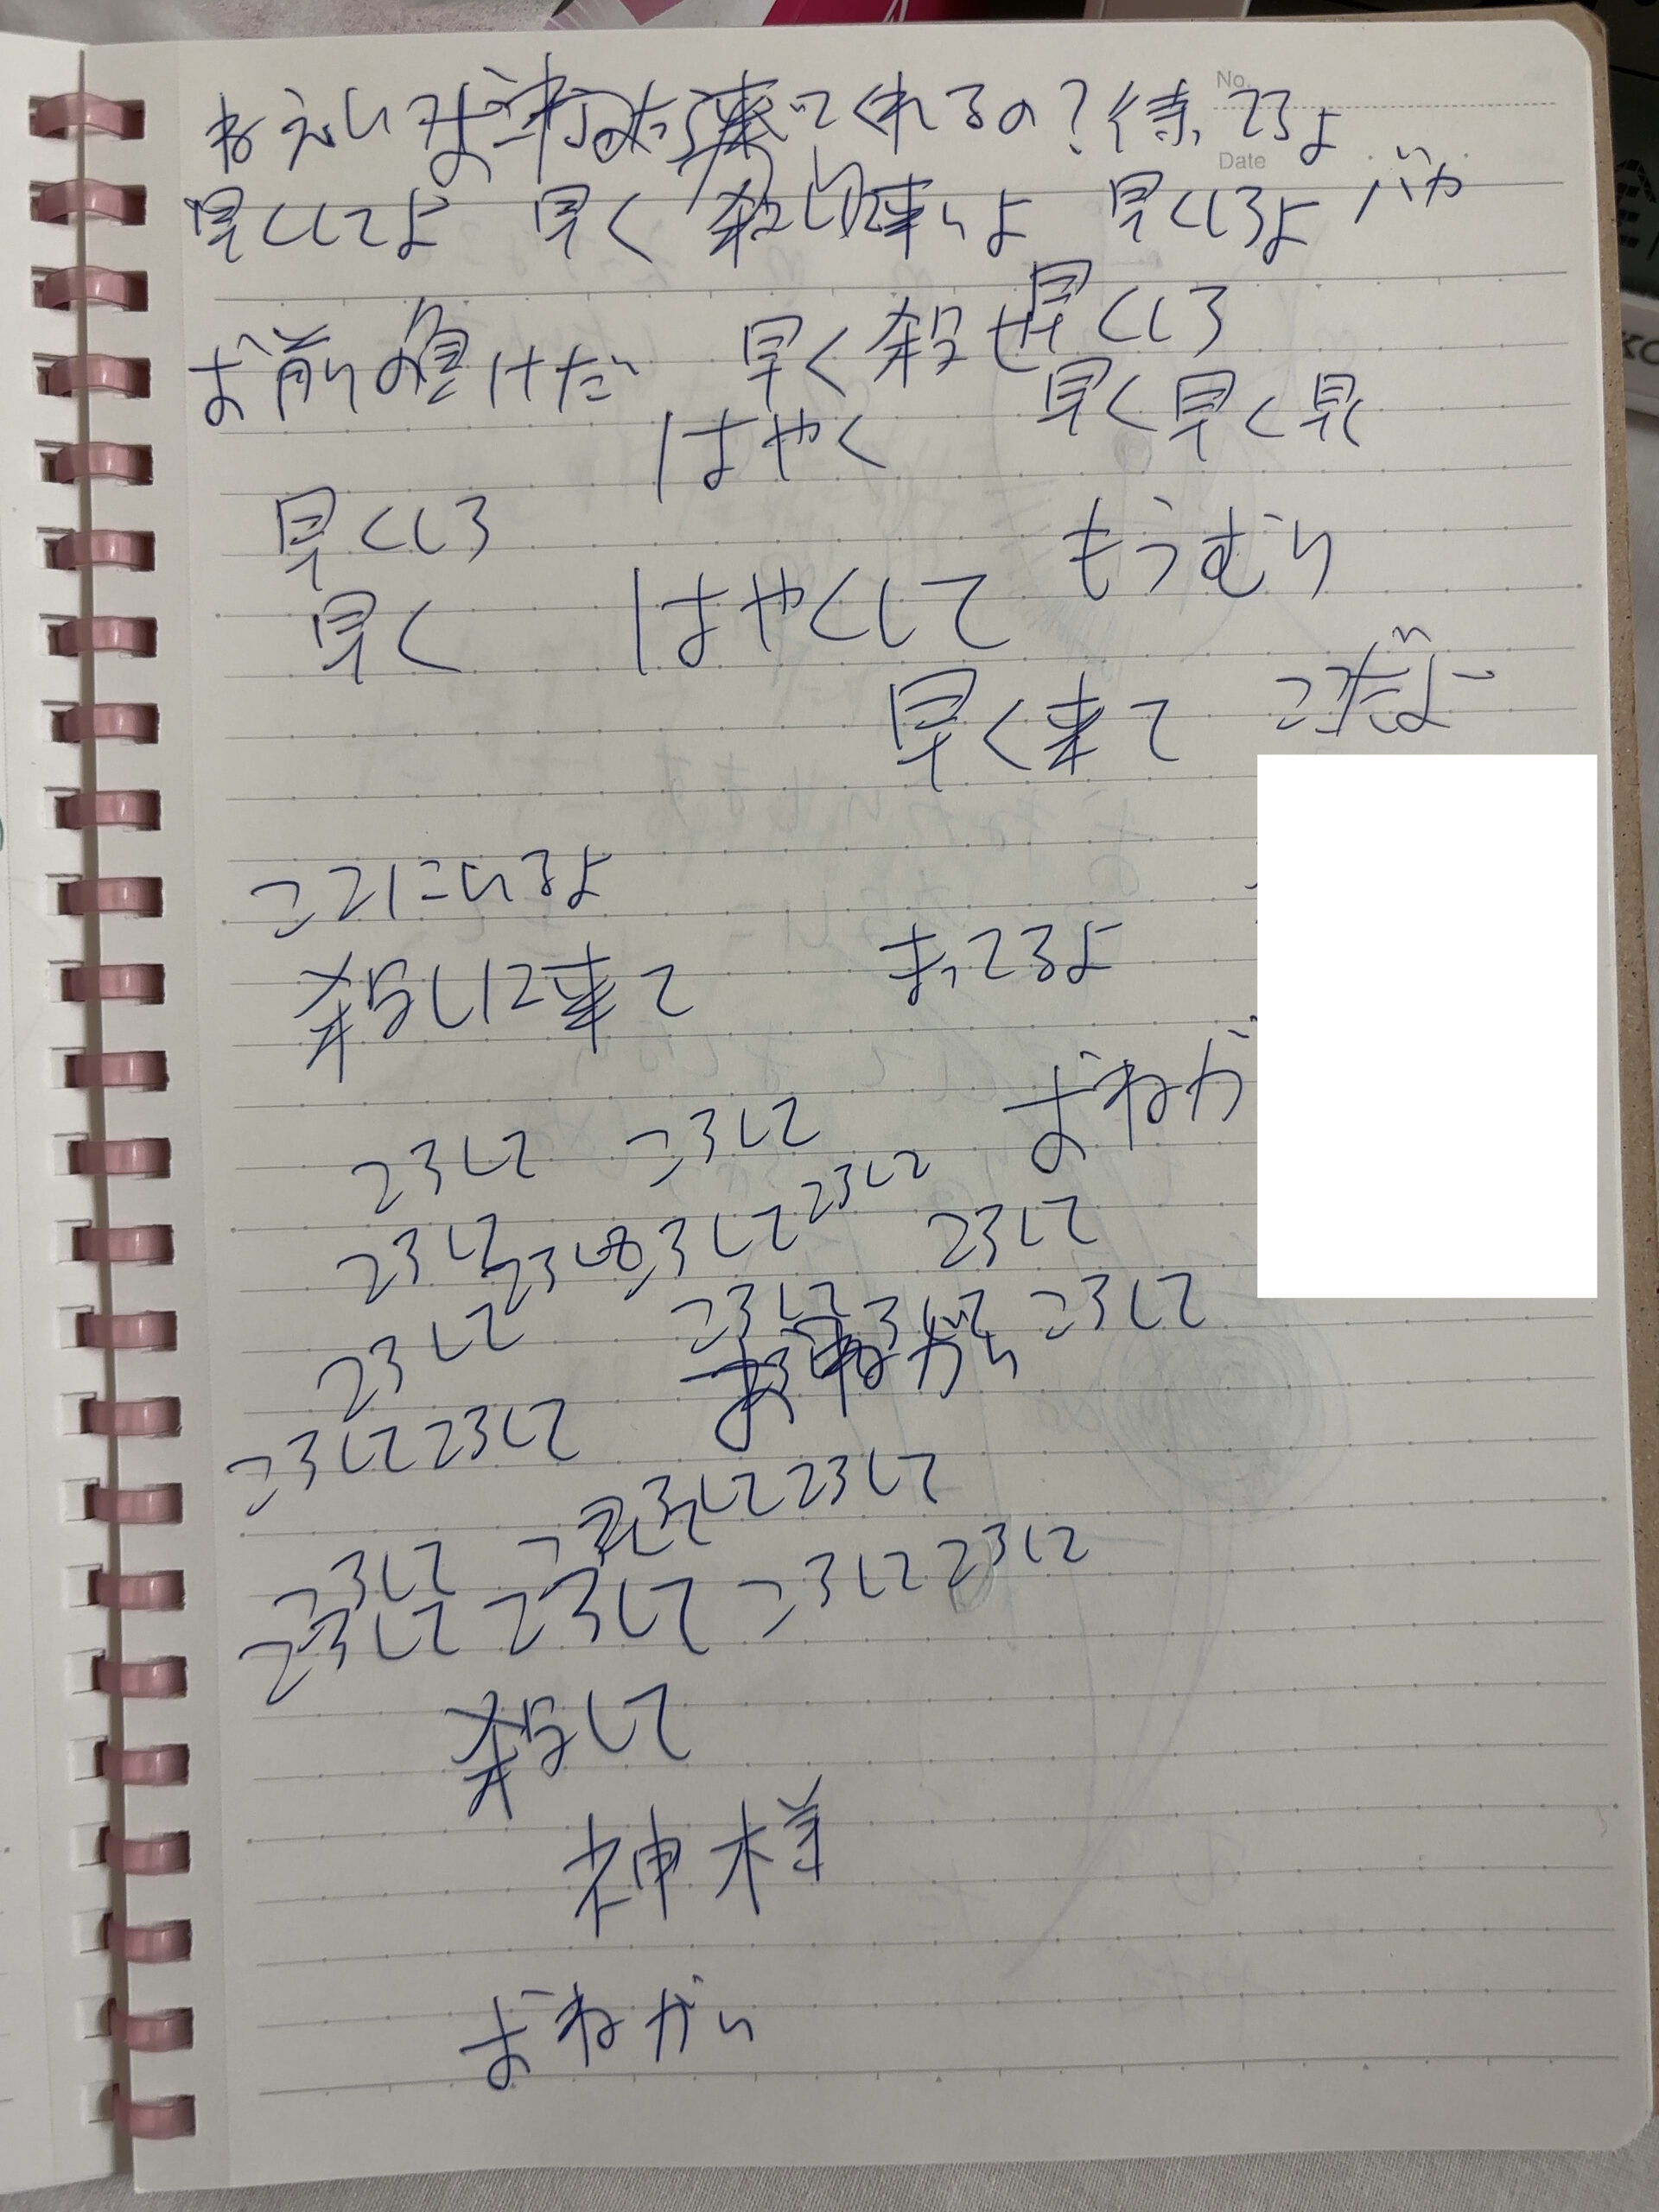 No.
ねえいつ来てくれるの?待ってるよ
Date
早くしてよ 早く殺し来いよ 早くしろよ バカ
お前の負けだ 早く殺せ 早くしろ
はやく 早く早く早く
早くしろ
早く はやくして もうむり
早く来て ここだよー
ここにいるよ
殺しに来て まってるよ
おねが
ころして ころして
ころして ころして ころして ころして ころして
ころして ころして ころして ころして
おねがい
ころしてころして
ころして ころして ころして
ころして ころして ころして ころして
殺して
神様
おねがい